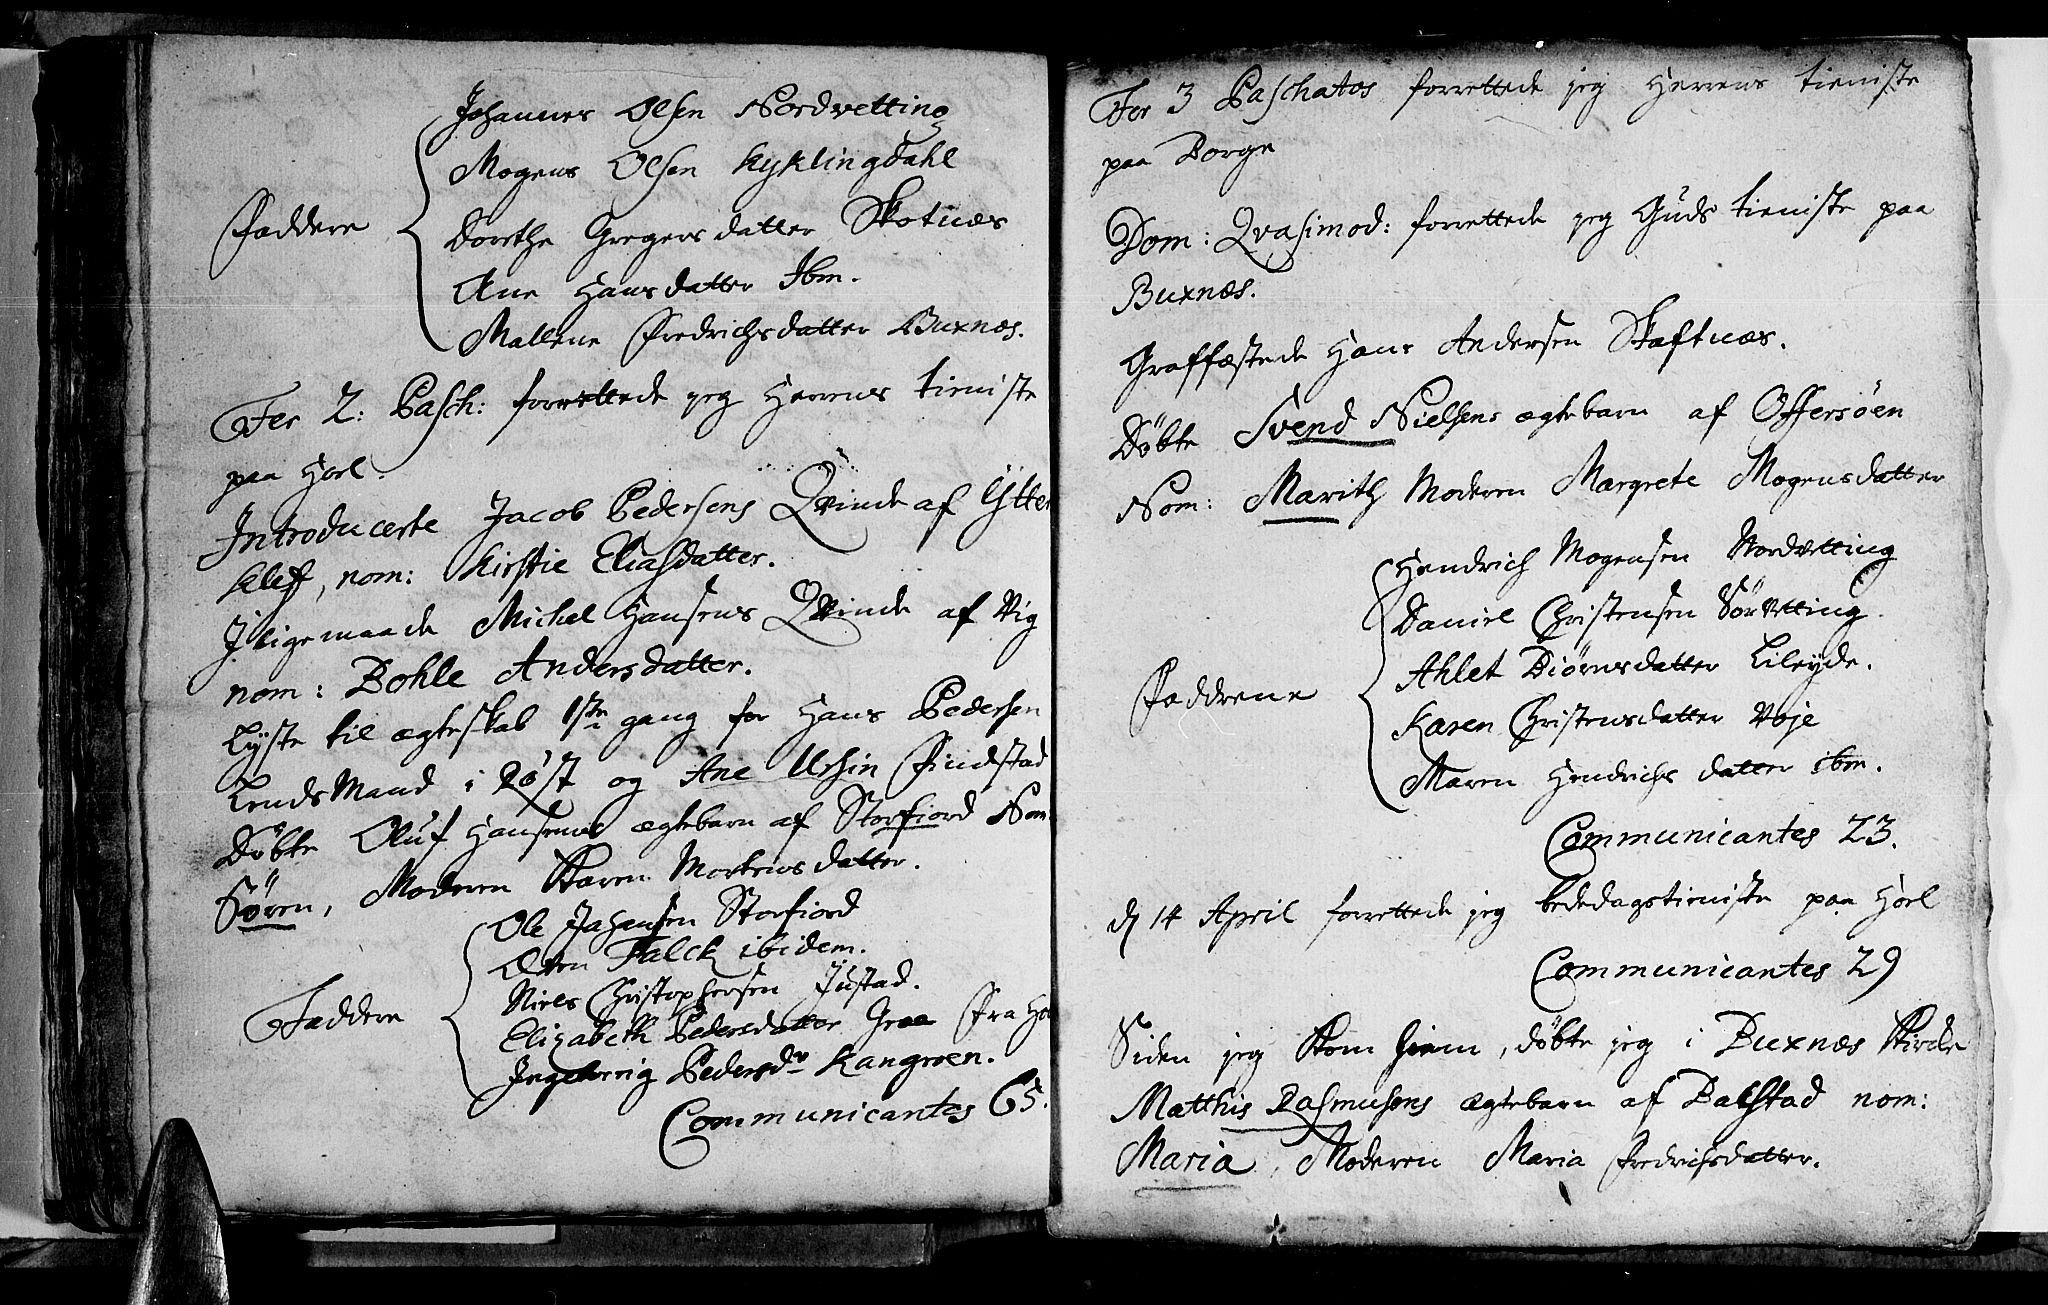 Johannes Olsen Nordvetting
Mogens Olsen Kyklingdahl
Faddere Dorthe Gregersdatter Skotnæs
Ane Hansdatter Ibm.
Mallene Fredrichsdatter Buxnæs.
Fer 2: Pasch: forrettede jeg Herrens tieniste
paa Hoel.
Introducerte Jacob Pedersens Qvinde af Ytter
klef, nom: Kirstie Eliasdatter.
Iligemaade Michel Hansens Qvinde af Vig
nom: Bohle Andersdatter.
Lyste til ægteskab 1ste gang for Hans Pedersen
LendsMand i Røst og Ane Ursin Findstad
Døbte Oluf Hansens ægtebarn af Storfiord Nom:
Søren, Moderen Karen Mortensdatter.
Ole Johansen Storfiord
Falck ibidem.
Niels Christophersen Justad.
Faddere Elizabeth Pedersdatter Graa fra Ho
Ingeborrig Pedersdr Kangroen.
Communicantes 65.
Fer 3 Paschatos forrettede jeg Herrens tieniste
paa Borge
Dom: Qvasimod: forrettede jeg Guds tieniste paa
Buxnæs.
Graffæstede Hans Andersen Skaftnæs.
Døbte Svend Nielsens ægtebarn af Offersöen
Nom: Marith Moderen Margrete Mogensdatter
Hendrich Mogensen Nordvetting
Daniel Christensen Sørvetting.
Ahlet Biörnsdatter Lileyde.
Faddrene Karen Christensdatter Voje
Maren Hendrichsdatter ibm.
Communicantes 23.
d 14 April forrettede jeg bededagstieniste paa Hoel
Communicantes 29
Siden jeg kom hiem, døbte jeg i Buxnæs Kirke
Matthis Rasmusens ægtebarn af Balstad nom:
Maria, Moderen Maria Fredrichsdatter.